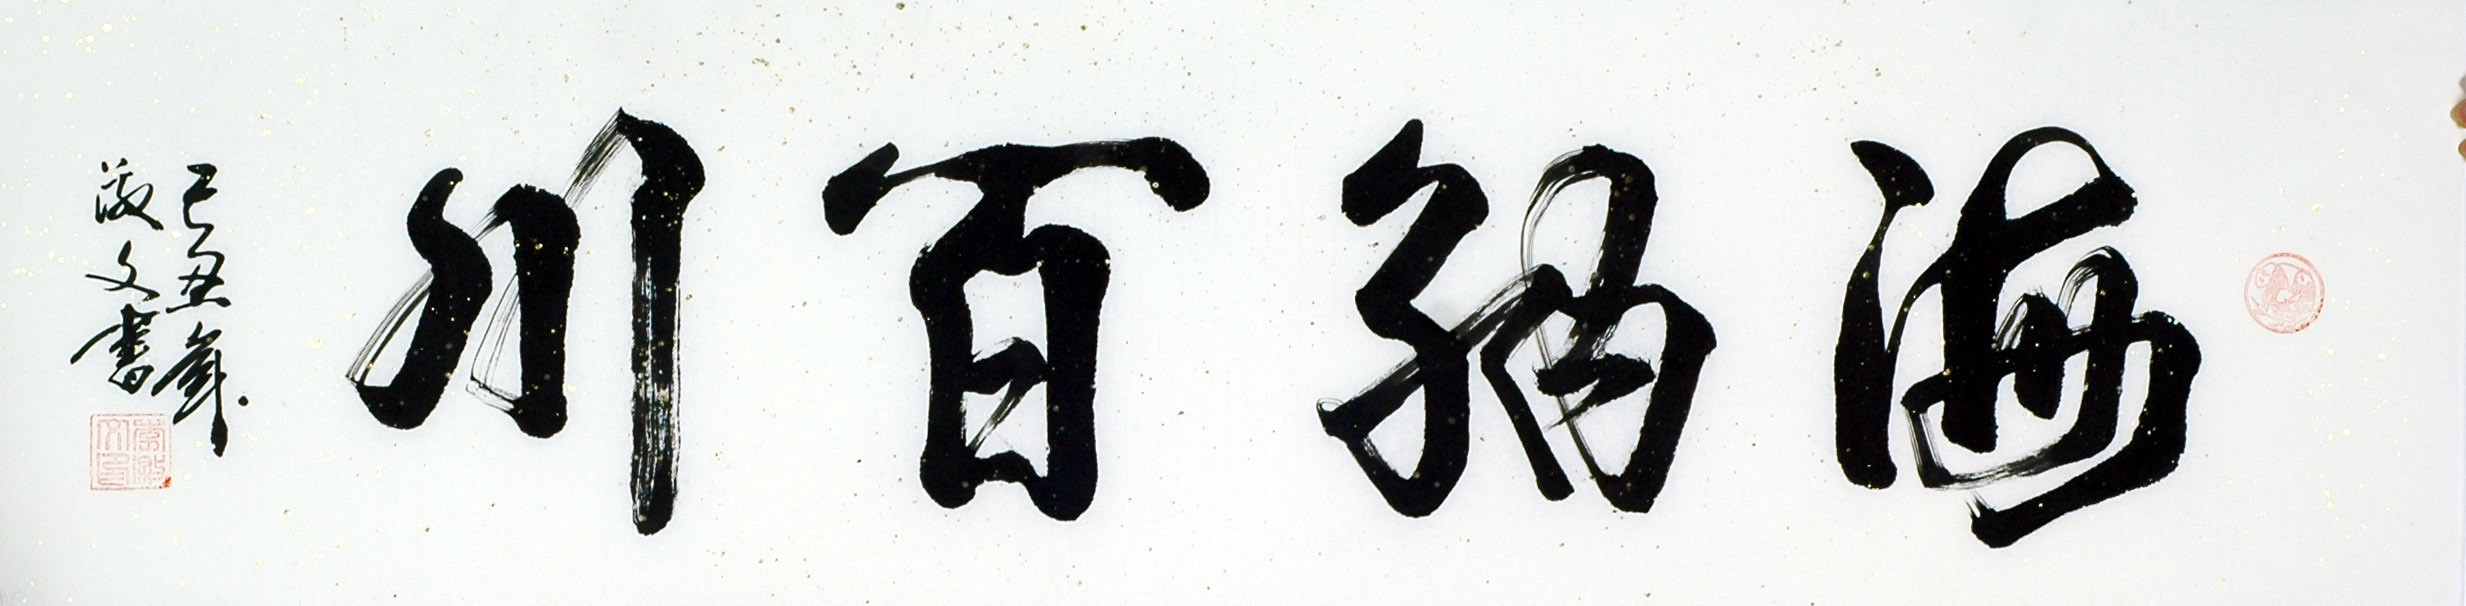 海納百川
己丑年
文書